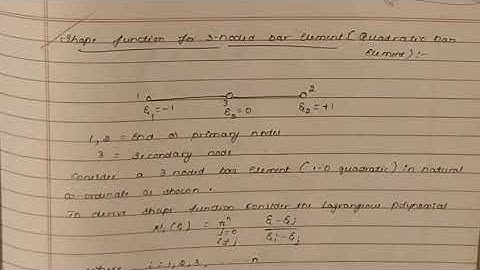 Shape function for 3-noded bar element (Quadratic bar
Element):-
1 3 2
ξ₁=-1 ξ₂=0 ξ₂=+1
1,2 = End or primary nodes
3 = Secondary node
Consider a 3 noded bar element (1-D quadratic) in natural
co-ordinate as shown.
To derive shape function consider the Lagrangeous polynomial
N₁(ξ) = πⁿ ξ-ξj
j=0 ξi-ξj
i≠j
where, i=1,2,3, ---- n